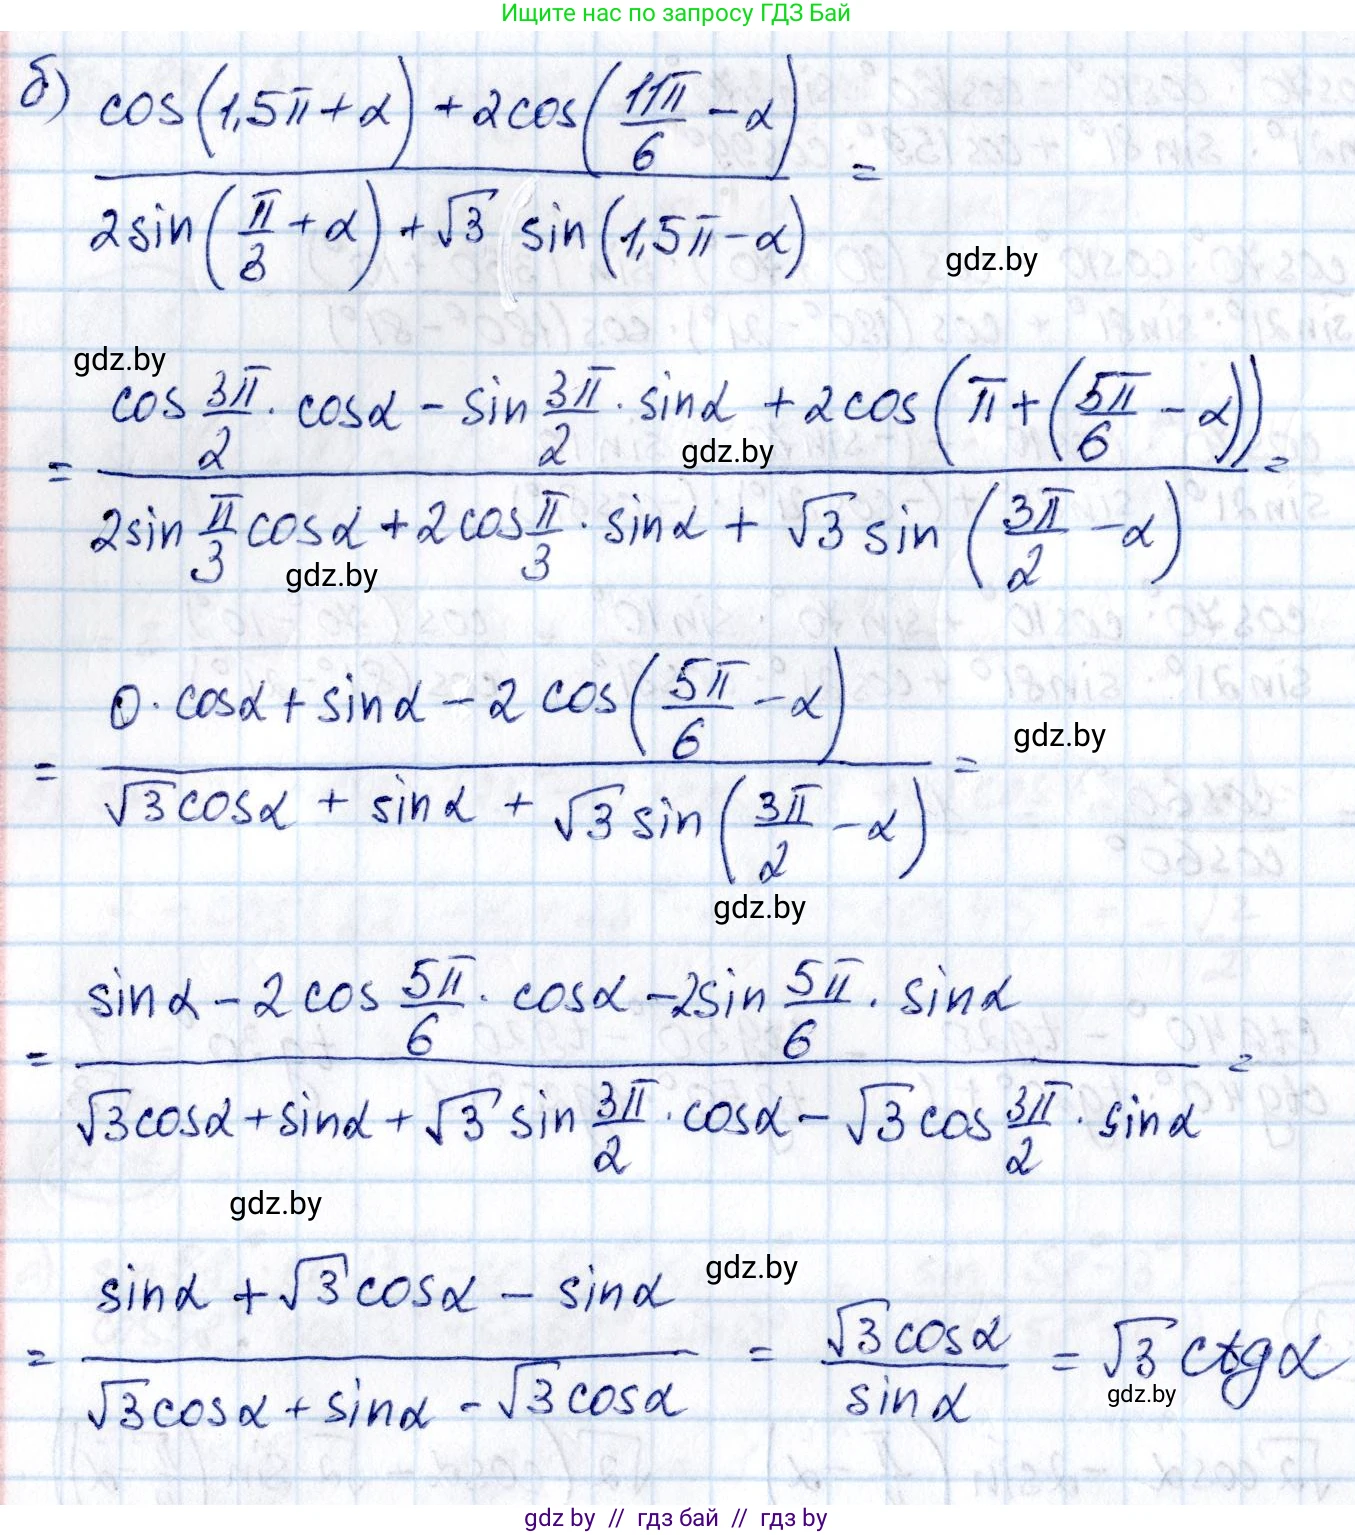 Ищите нас по запросу ГДЗ Бай
б) (cos(1,5π+α) + 2cos(11π/6 − α)) / (2sin(π/3 + α) + √3 sin(1,5π − α)) =
gdz.by
gdz.by
= (cos 3π/2 · cosα − sin 3π/2 · sinα + 2cos(π + (5π/6 − α))) / (2sin π/3 cosα + 2cos π/3 · sinα + √3 sin(3π/2 − α)) =
gdz.by
gdz.by
= (0 · cosα + sinα − 2cos(5π/6 − α)) / (√3 cosα + sinα + √3 sin(3π/2 − α)) =
gdz.by
gdz.by
= (sinα − 2cos 5π/6 · cosα − 2sin 5π/6 · sinα) / (√3 cosα + sinα + √3 sin 3π/2 · cosα − √3 cos 3π/2 · sinα) =
gdz.by
gdz.by
= (sinα + √3 cosα − sinα) / (√3 cosα + sinα − √3 cosα) = (√3 cosα) / (sinα) = √3 ctgα
gdz.by
gdz by // гдз бай // гдз by